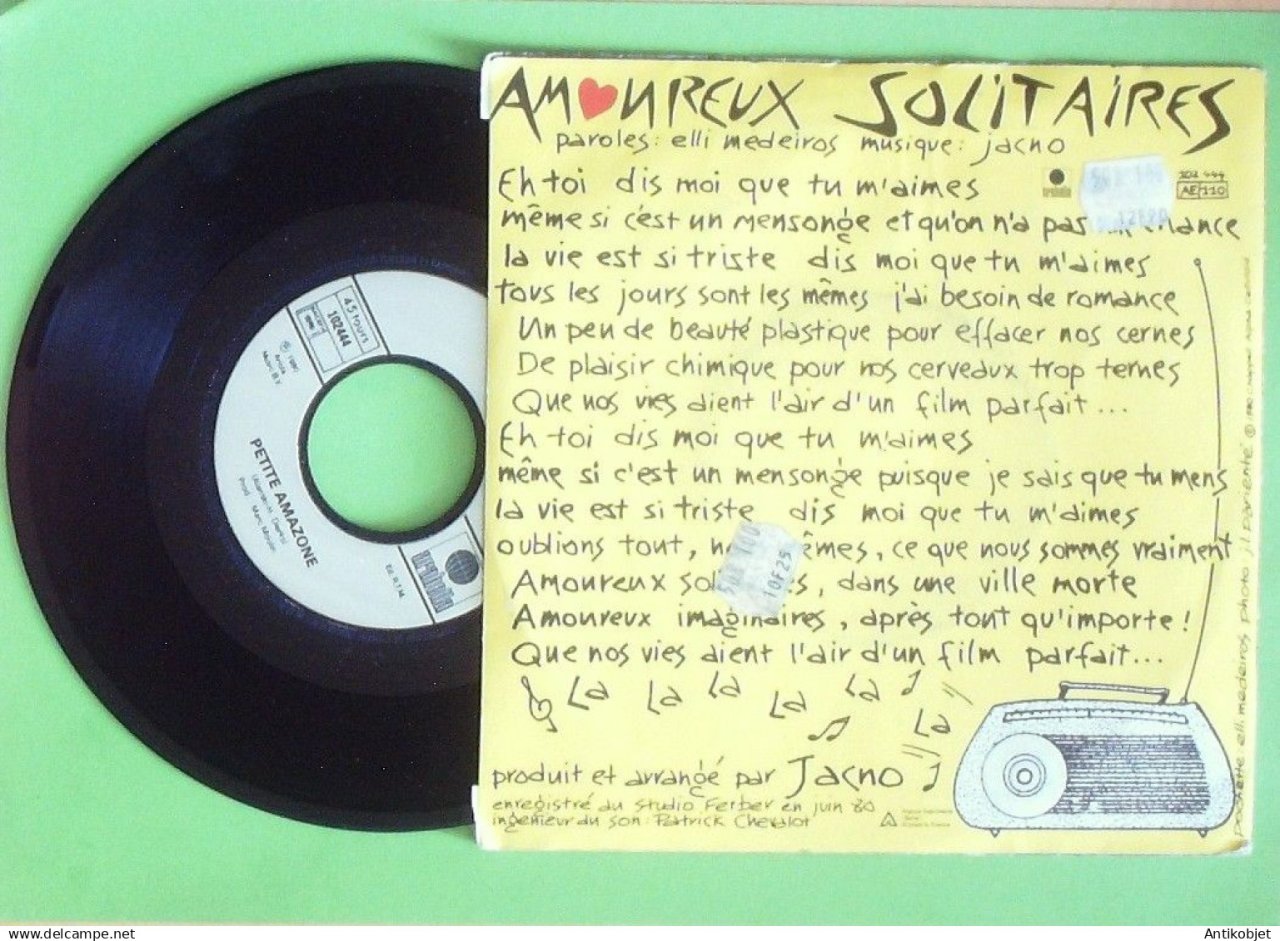 AMOUREUX SOLITAIRES
paroles: elli medeiros musique: jacno
Eh toi dis moi que tu m'aimes
même si c'est un mensonge et qu'on n'a pas
la vie est si triste dis moi que tu m'aimes
tous les jours sont les mêmes j'ai besoin de romance
Un peu de beauté plastique pour effacer nos cernes
De plaisir chimique pour nos cerveaux trop ternes
Que nos vies aient l'air d'un film parfait...
Eh toi dis moi que tu m'aimes
même si c'est un mensonge puisque je sais que tu mens
la vie est si triste dis moi que tu m'aimes
oublions tout, ce que nous sommes vraiment
Amoureux dans une ville morte
Amoureux imaginaires, après tout qu'importe!
Que nos vies aient l'air d'un film parfait...
La La La La La La
produit et arrangé par Jacno
enregistré au studio Ferber en juin 80
ingénieur du son: Patrick Chevalot
ariola
102 444
AE 110
12F20
10F25
pochette elli medeiros photo jl parienté
45 tours
102444
PETITE AMAZONE
ariola
Antikobjet